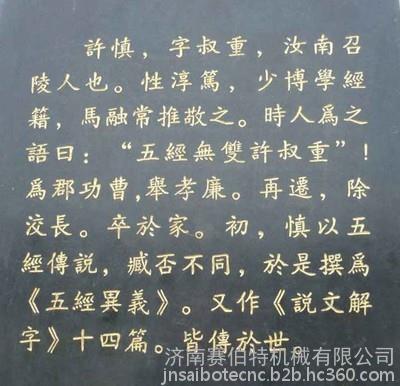 許慎，字叔重，汝南召
陵人也。性淳篤，少博學經
籍，馬融常推敬之。時人爲之
語曰：“五經無雙許叔重”！
爲郡功曹,舉孝廉。再遷，除
洨長。卒於家。初，慎以五
經傳説，臧否不同，於是撰爲
《五經異義》。又作《説文解
字》十四篇。皆傳於世。
济南赛伯特机械有限公司
jnsaibotecnc.b2b.hc360.com